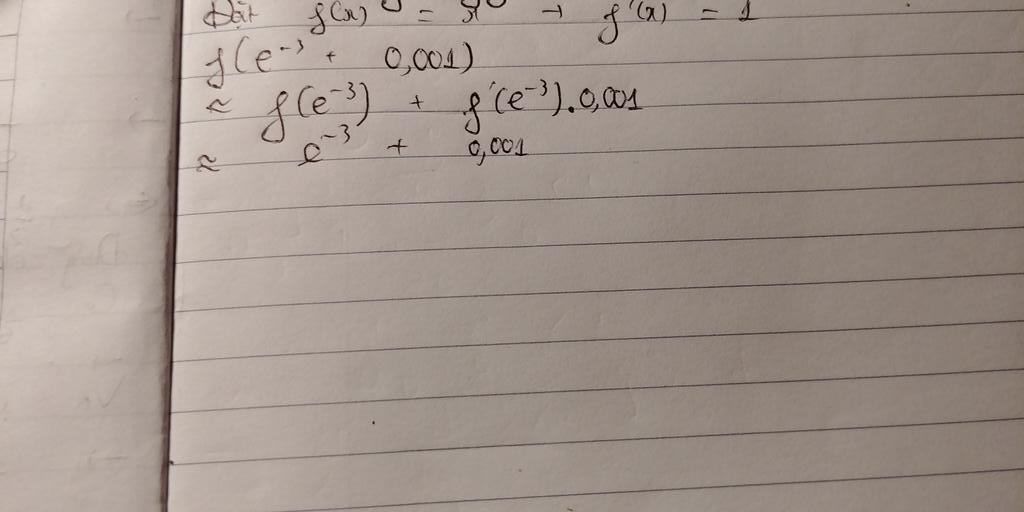 Đặt f(x) = x → f'(x) = 1
f(e⁻³ + 0,001)
≈ f(e⁻³) + f'(e⁻³).0,001
≈ e⁻³ + 0,001